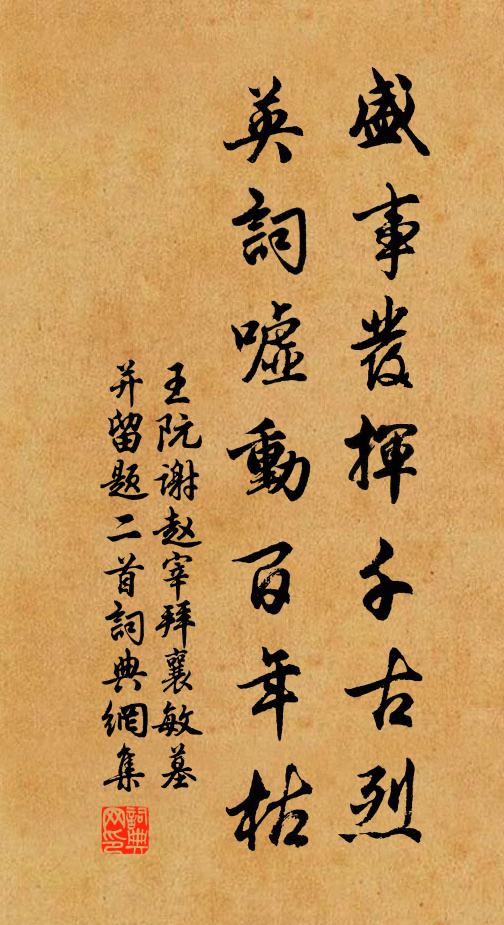 盛事發揮千古烈
英詞嘘動百年枯
王阮谢赵宰拜襄敏墓
并留题二首詞典網集
詞典网印